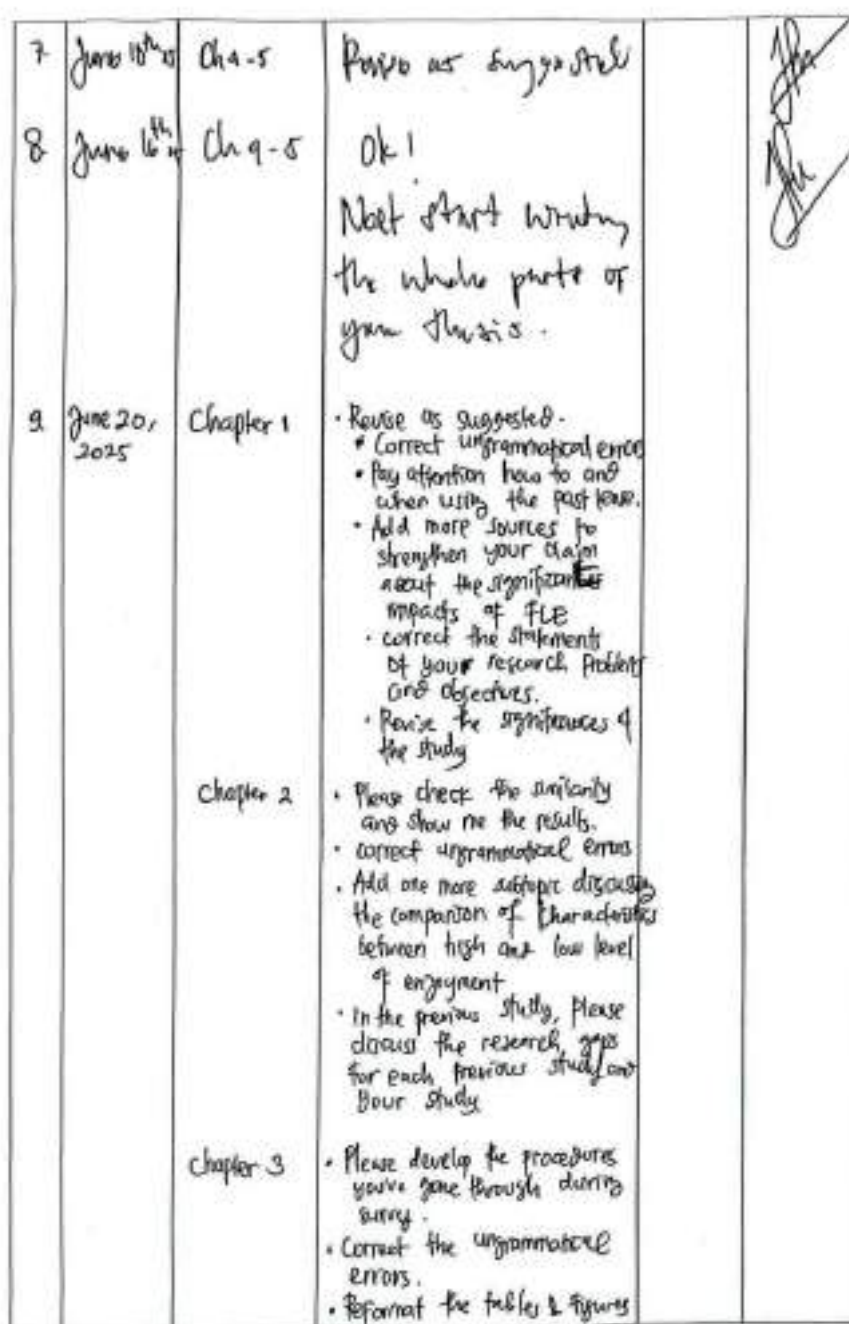 7 June 10th 25 Ch 4-5 Revise as suggested
8 June 16th Ch 4-5 Ok!
Next start writing
the whole parts of
your thesis.
9 June 20, Chapter 1 • Revise as suggested.
2025 • Correct ungrammatical error
• Pay attention how to and
when using the past tense.
• Add more sources to
strengthen your claim
about the significant
impacts of FLE
• correct the statements
of your research problems
and objectives.
• Revise the significances of
the study
Chapter 2 • Please check the similarity
and show me the results.
• correct ungrammatical errors
• Add one more subtopic discussing
the comparison of characteristics
between high and low level
of enjoyment
• In the previous study, please
discuss the research gaps
for each previous study and
your study
Chapter 3 • Please develop the procedures
you've gone through during
survey.
• Correct the ungrammatical
errors.
• Reformat the tables & figures